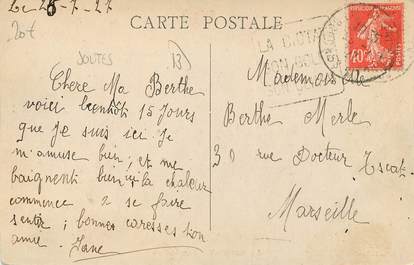 Le 28-7-27
CARTE POSTALE
20€
JOUTES
13
LA CIOTAT
SON GOL
40c
Chere Ma Berthe
voici bientôt 15 jours
que je suis ici je
m'amuse bien, et me
baignent bien ici la chaleur
commence a se faire
sentir ; bonnes caresses ton
amie. Jane
Mademoiselle
Berthe Merle
30 rue Docteur Escat
Marseille